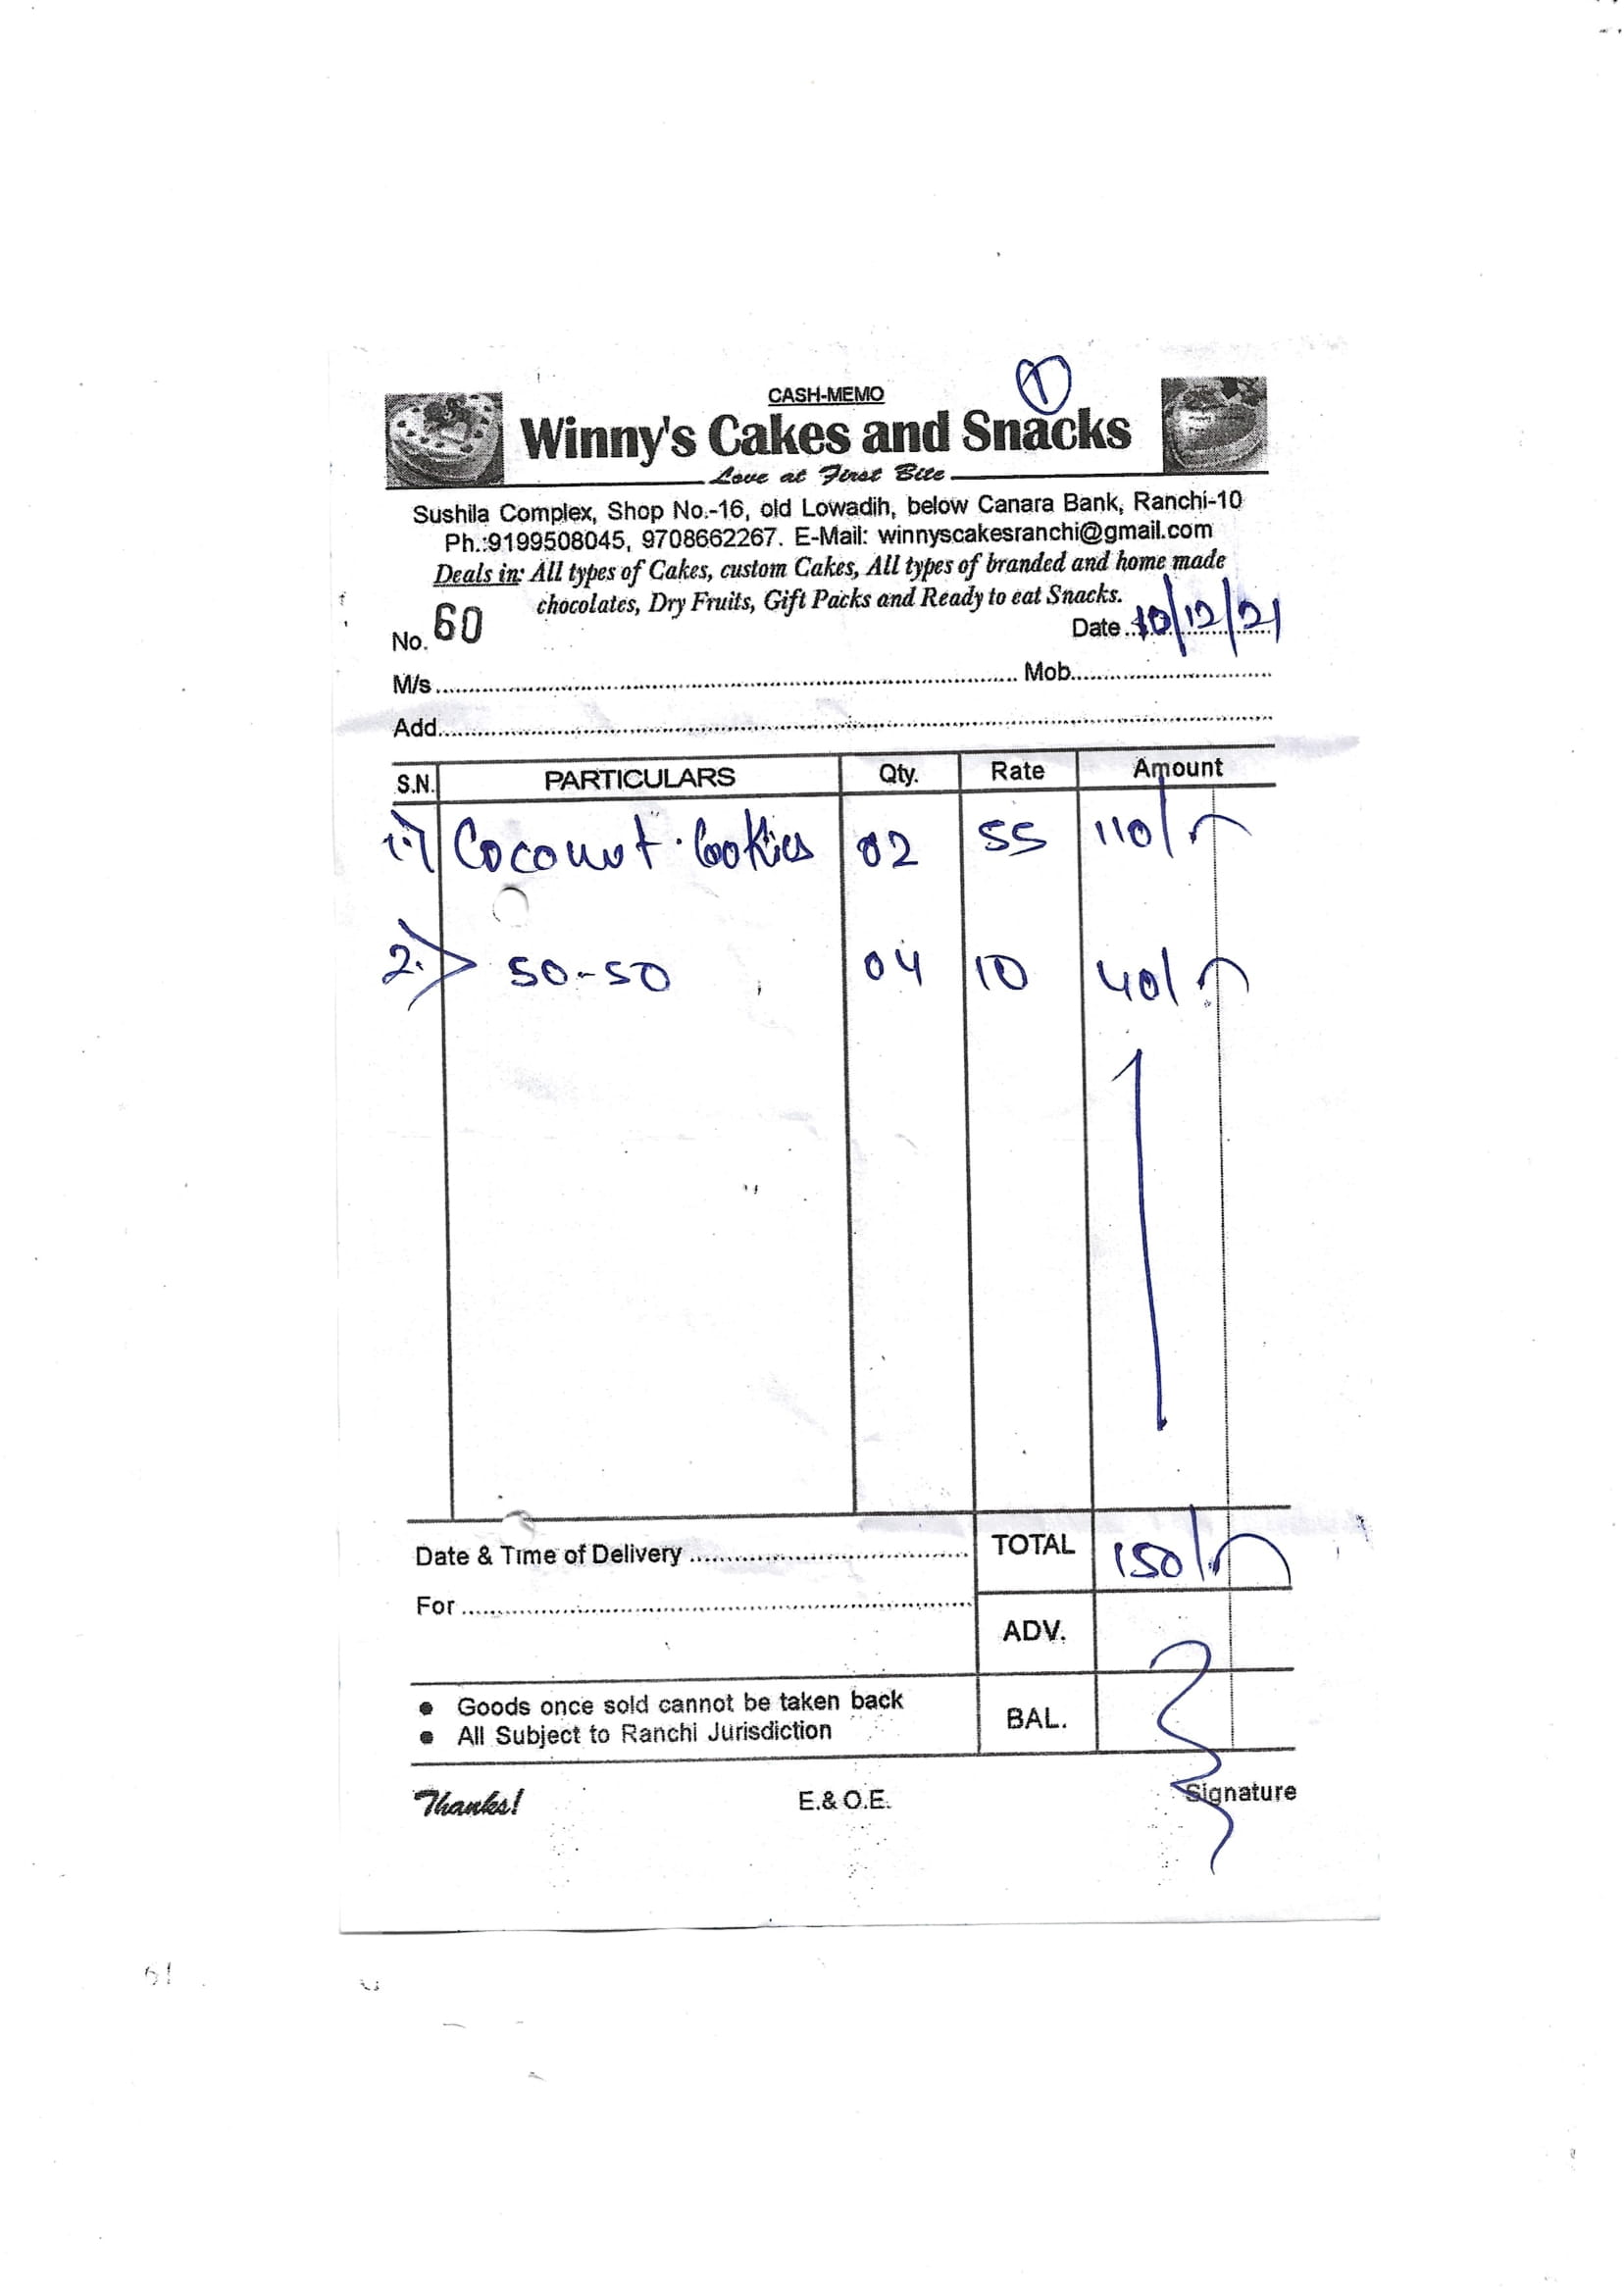 1
CASH-MEMO
Winny's Cakes and Snacks
Love at First Bite
Sushila Complex, Shop No.-16, old Lowadih, below Canara Bank, Ranchi-10
Ph.:9199508045, 9708662267. E-Mail: winnyscakesranchi@gmail.com
Deals in: All types of Cakes, custom Cakes, All types of branded and home made
chocolates, Dry Fruits, Gift Packs and Ready to eat Snacks.
No. 60 Date 10/12/21
M/s Mob.
Add.
S.N. PARTICULARS Qty. Rate Amount
1. Coconut Cookies 02 55 110/-
2. 50-50 04 10 40/-
Date & Time of Delivery TOTAL 150/-
For
ADV.
• Goods once sold cannot be taken back
• All Subject to Ranchi Jurisdiction
BAL.
Thanks! E.& O.E. Signature